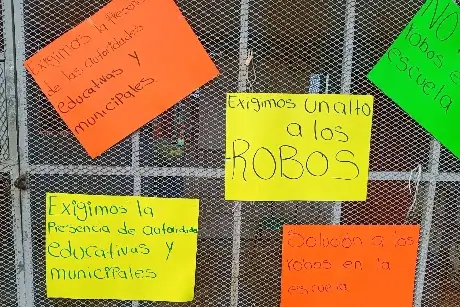 Exigimos la Presencia
de las autoridades
educativas y
municipales
NO
robos en
escuela
Exigimos un alto
a los
ROBOS
Exigimos la
Presencia de autoridades
educativas y
municipales
Solucion a los
robos en la
escuela